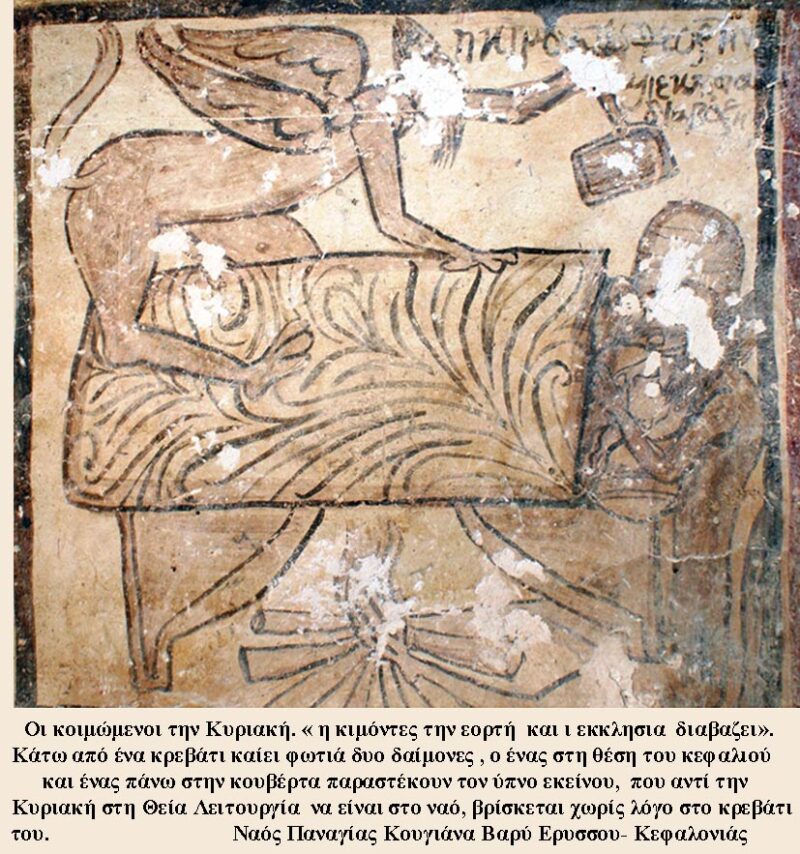 Οι κοιμώμενοι την Κυριακή. « η κιμόντες την εορτή και ι εκκλησια διαβαζει».
Κάτω από ένα κρεβάτι καίει φωτιά δυο δαίμονες , ο ένας στη θέση του κεφαλιού
και ένας πάνω στην κουβέρτα παραστέκουν τον ύπνο εκείνου, που αντί την
Κυριακή στη Θεία Λειτουργία να είναι στο ναό, βρίσκεται χωρίς λόγο στο κρεβάτι
του. Ναός Παναγίας Κουγιάνα Βαρύ Ερυσσου- Κεφαλονιάς